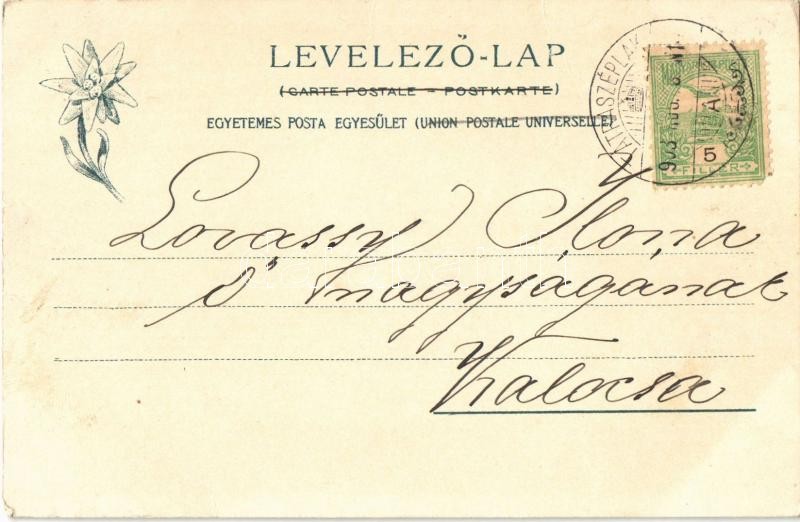 LEVELEZŐ-LAP
(CARTE POSTALE – POSTKARTE)
EGYETEMES POSTA EGYESÜLET (UNION POSTALE UNIVERSELLE)
TÁTRASZÉPLAK
5
FILLÉR
Lovassy Ilona
Ő nagyságának
Kalocsa